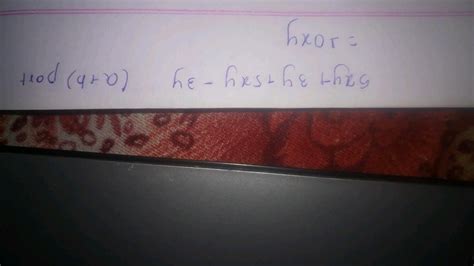 5xy + 3y + 5xy - 3y (a+b) part
= 10xy